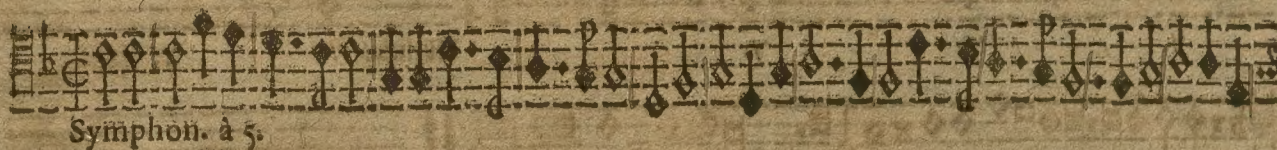 Symphon. à 5.